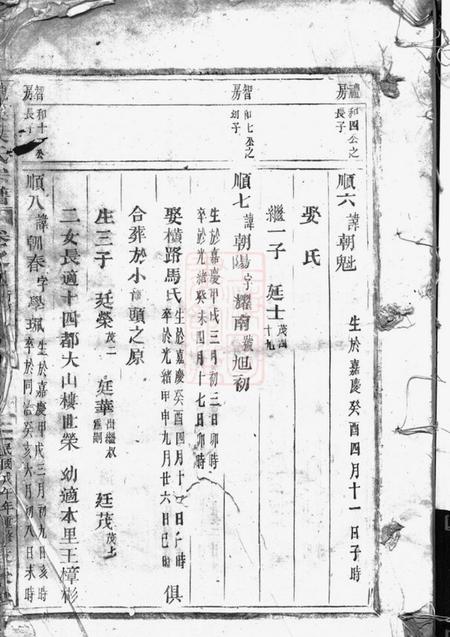 禮房
和四公之長子
順六 諱朝魁 生於嘉慶癸酉四月十一日子時
娶氏
繼一子 廷士 茂四十九
智房
和七公之幼子
順七 諱朝陽字耀南號旭初
生於嘉慶甲戌三月初三日卯時
卒於光緒癸未四月十七日卯時
娶橫路馬氏 生於嘉慶癸酉四月十 日 時
卒於光緒甲申九月廿六日巳時 俱
合葬於小 頭之原
生三子 廷榮 茂二 廷華 出繼 叔 廷茂 茂
二女長適十四都大山樓世榮 幼適本里王樟彬
智房
和十 公長子
順八 諱朝春字學珮
生於嘉慶甲戌三月初九日亥時
卒於同治癸亥六月初八日未時
民國戊午年重修